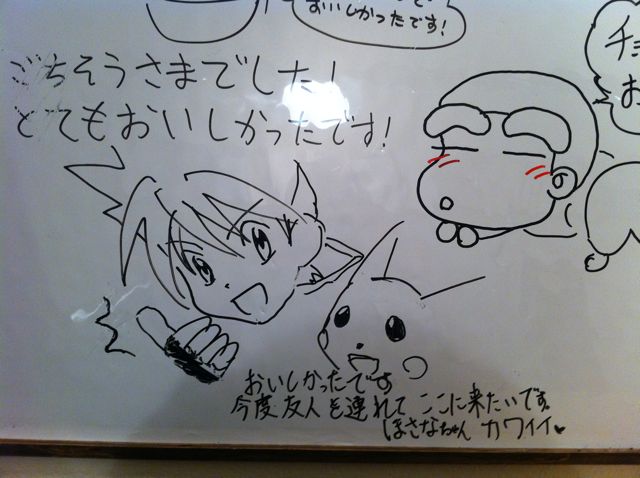 おいしかったです!
ごちそうさまでした!
とてもおいしかったです!
チョ
お
おいしかったです
今度友人を連れてここに来たいです。
ほさなちゃん カワイイ♥